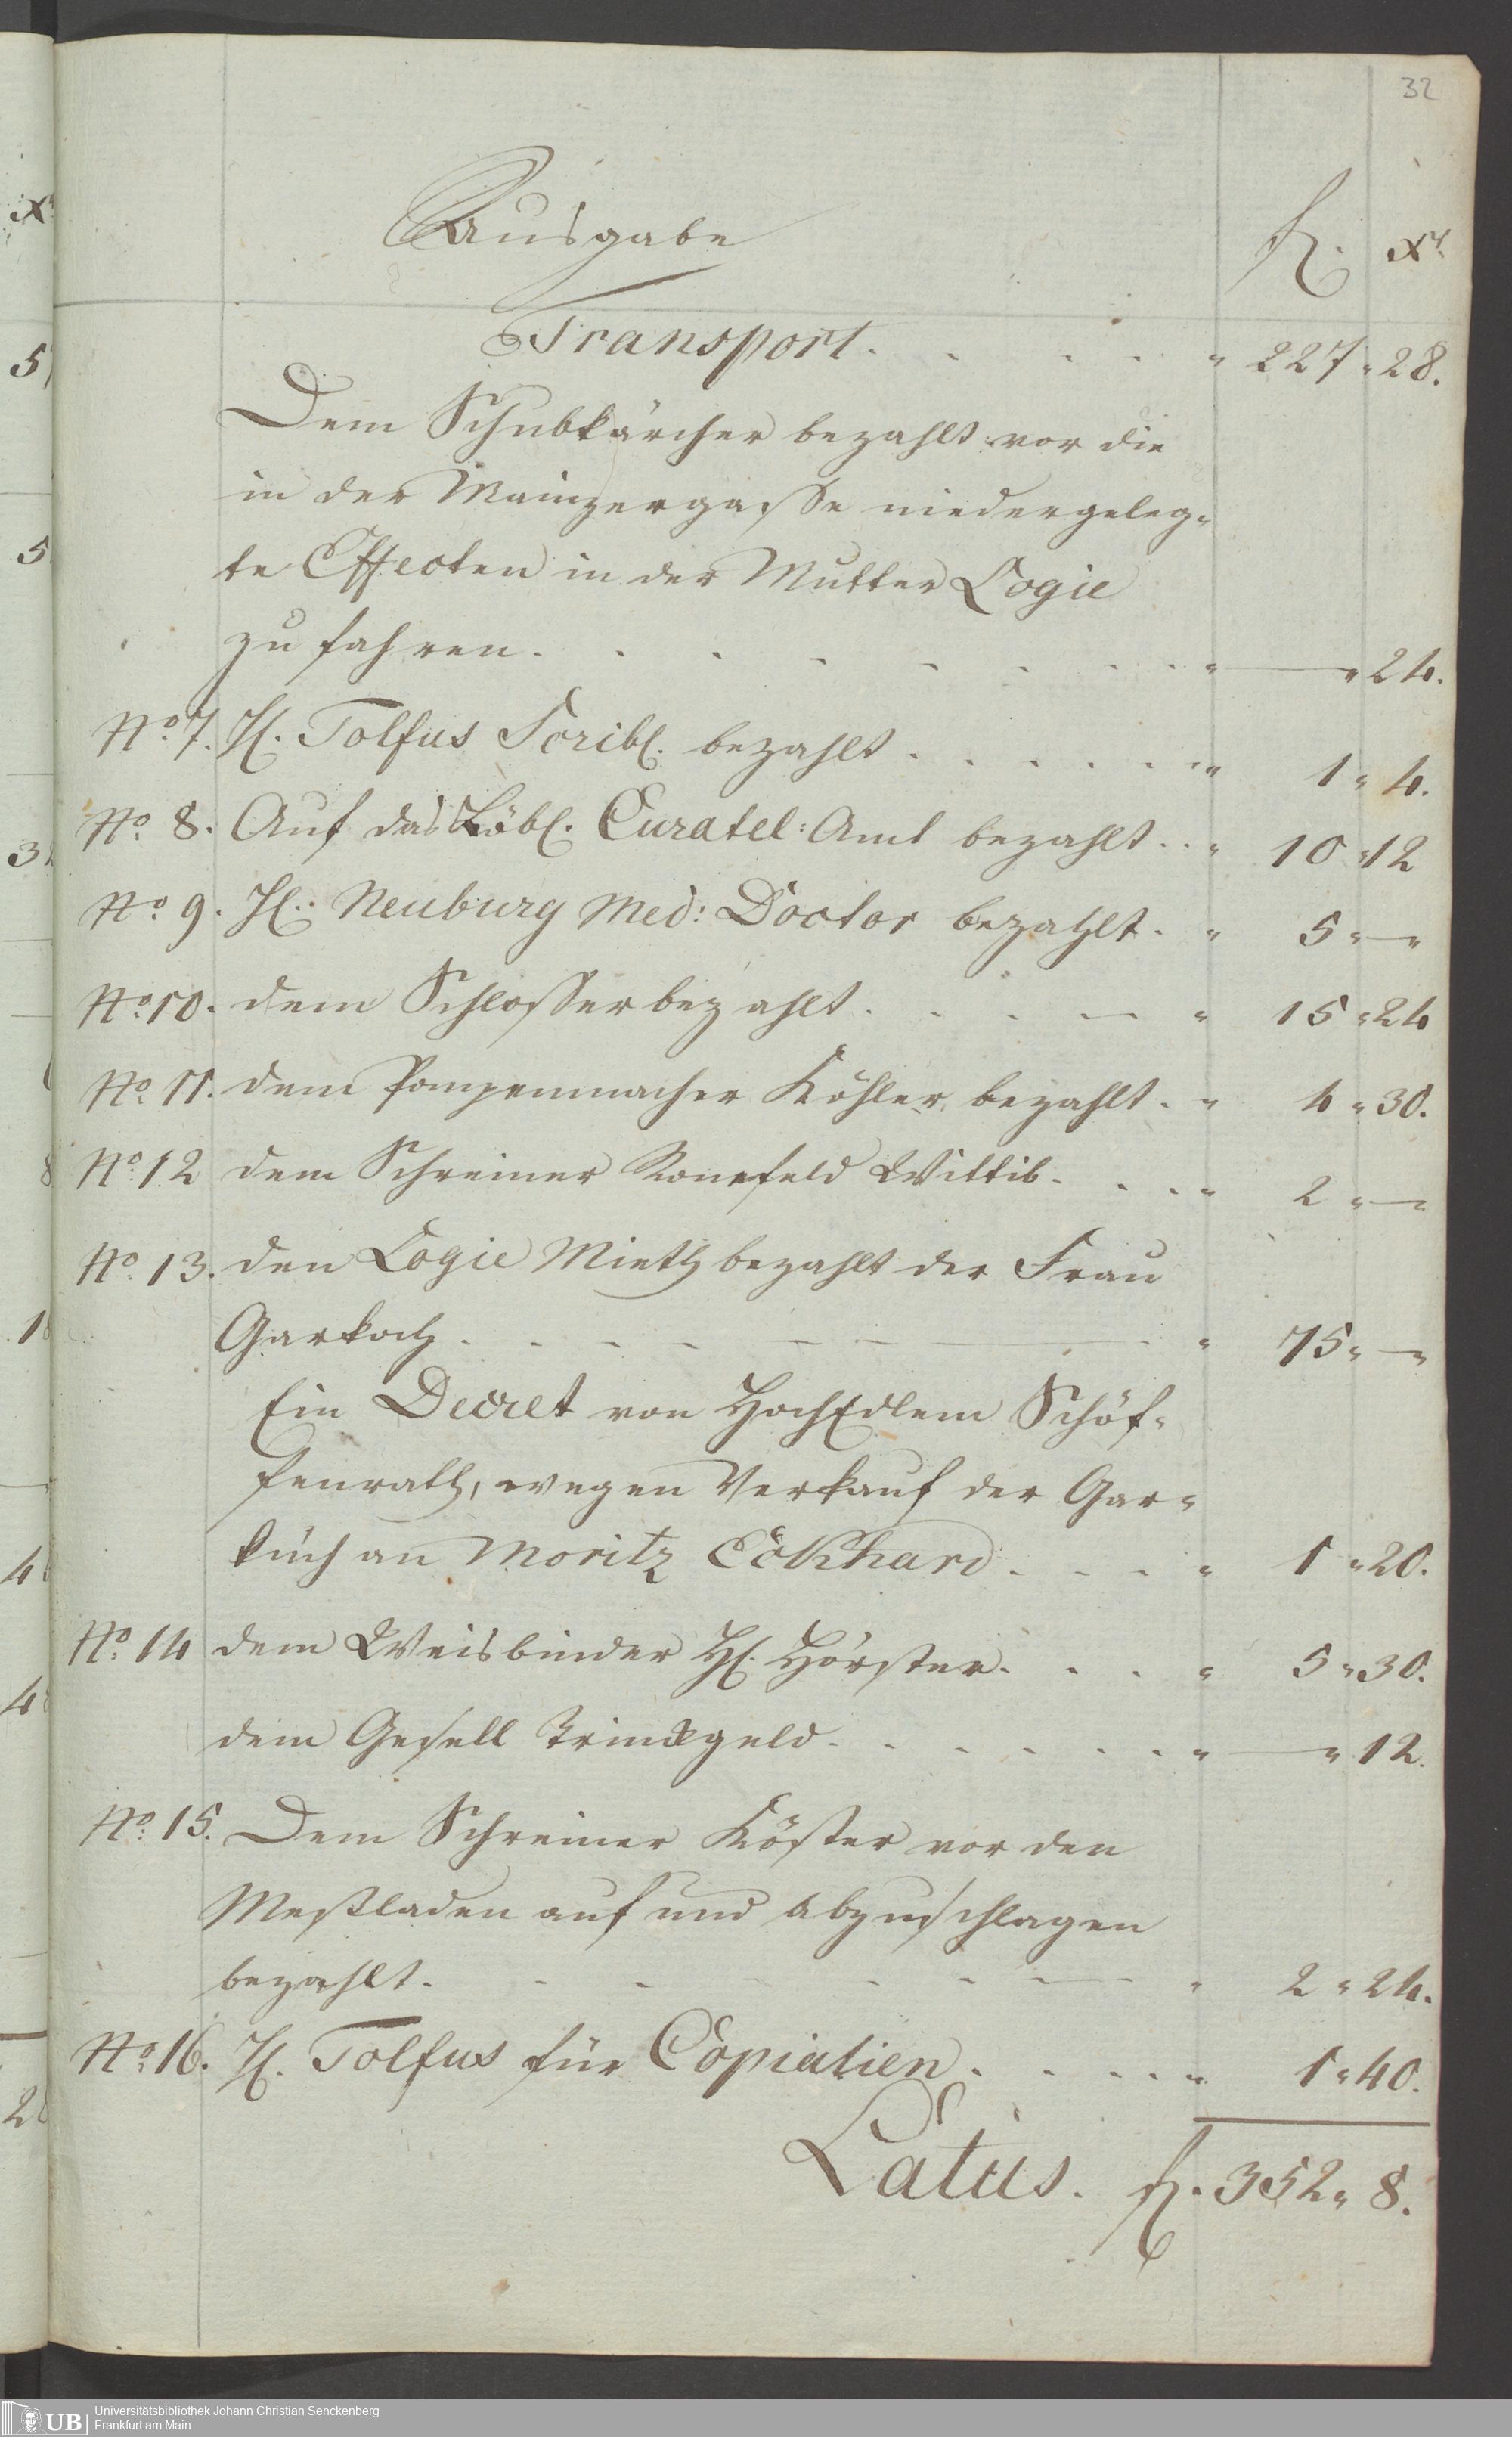 32
Ausgabe fl. Xr.
Transport. . . . . " 227 " 28.
Dem Schubkärcher bezahlt vor die
in der Mainzergasse niedergeleg=
te Effecten in der Mutter Logie
zu fahren. . . . . . . . . " — " 24.
No. 7. H. Tolfus Scribl. bezahlt . . . . . . " 1 " 4.
No. 8. Auf das Löbl. Curatel: Amt bezahlt . . " 10 " 12
No. 9. H. Neuburg Med: Doctor bezahlt . " 5 " — "
No. 10. dem Schlosser bezahlt . . . — " 15 " 24
No. 11. dem Pompenmacher Köhler bezahlt . " 4 " 30.
No. 12 dem Schreiner Ronefeld Wittib . . . " 2 " —
No. 13. den Logie Mieth bezahlt der Frau
Garkoch . . . . — — " 75 " — "
Ein Decret von HochEdlem Schöf=
fenrath, wegen Verkauf der Gar=
küch an Moritz Eckhard . . . " 1 " 20.
No. 14 dem Weisbinder H. Hörster . . . " 5 " 30.
dem Gesell Trinkgeld . . . . . . . " — " 12.
No. 15. Dem Schreiner Köster vor den
Meßladen auf und abzuschlagen
bezahlt . . . . . . — " 2 " 24.
No. 16. H. Tolfus für Copialien . . . . . " 1 " 40.
Latus. fl. 352 " 8.
UB Universitätsbibliothek Johann Christian Senckenberg
Frankfurt am Main